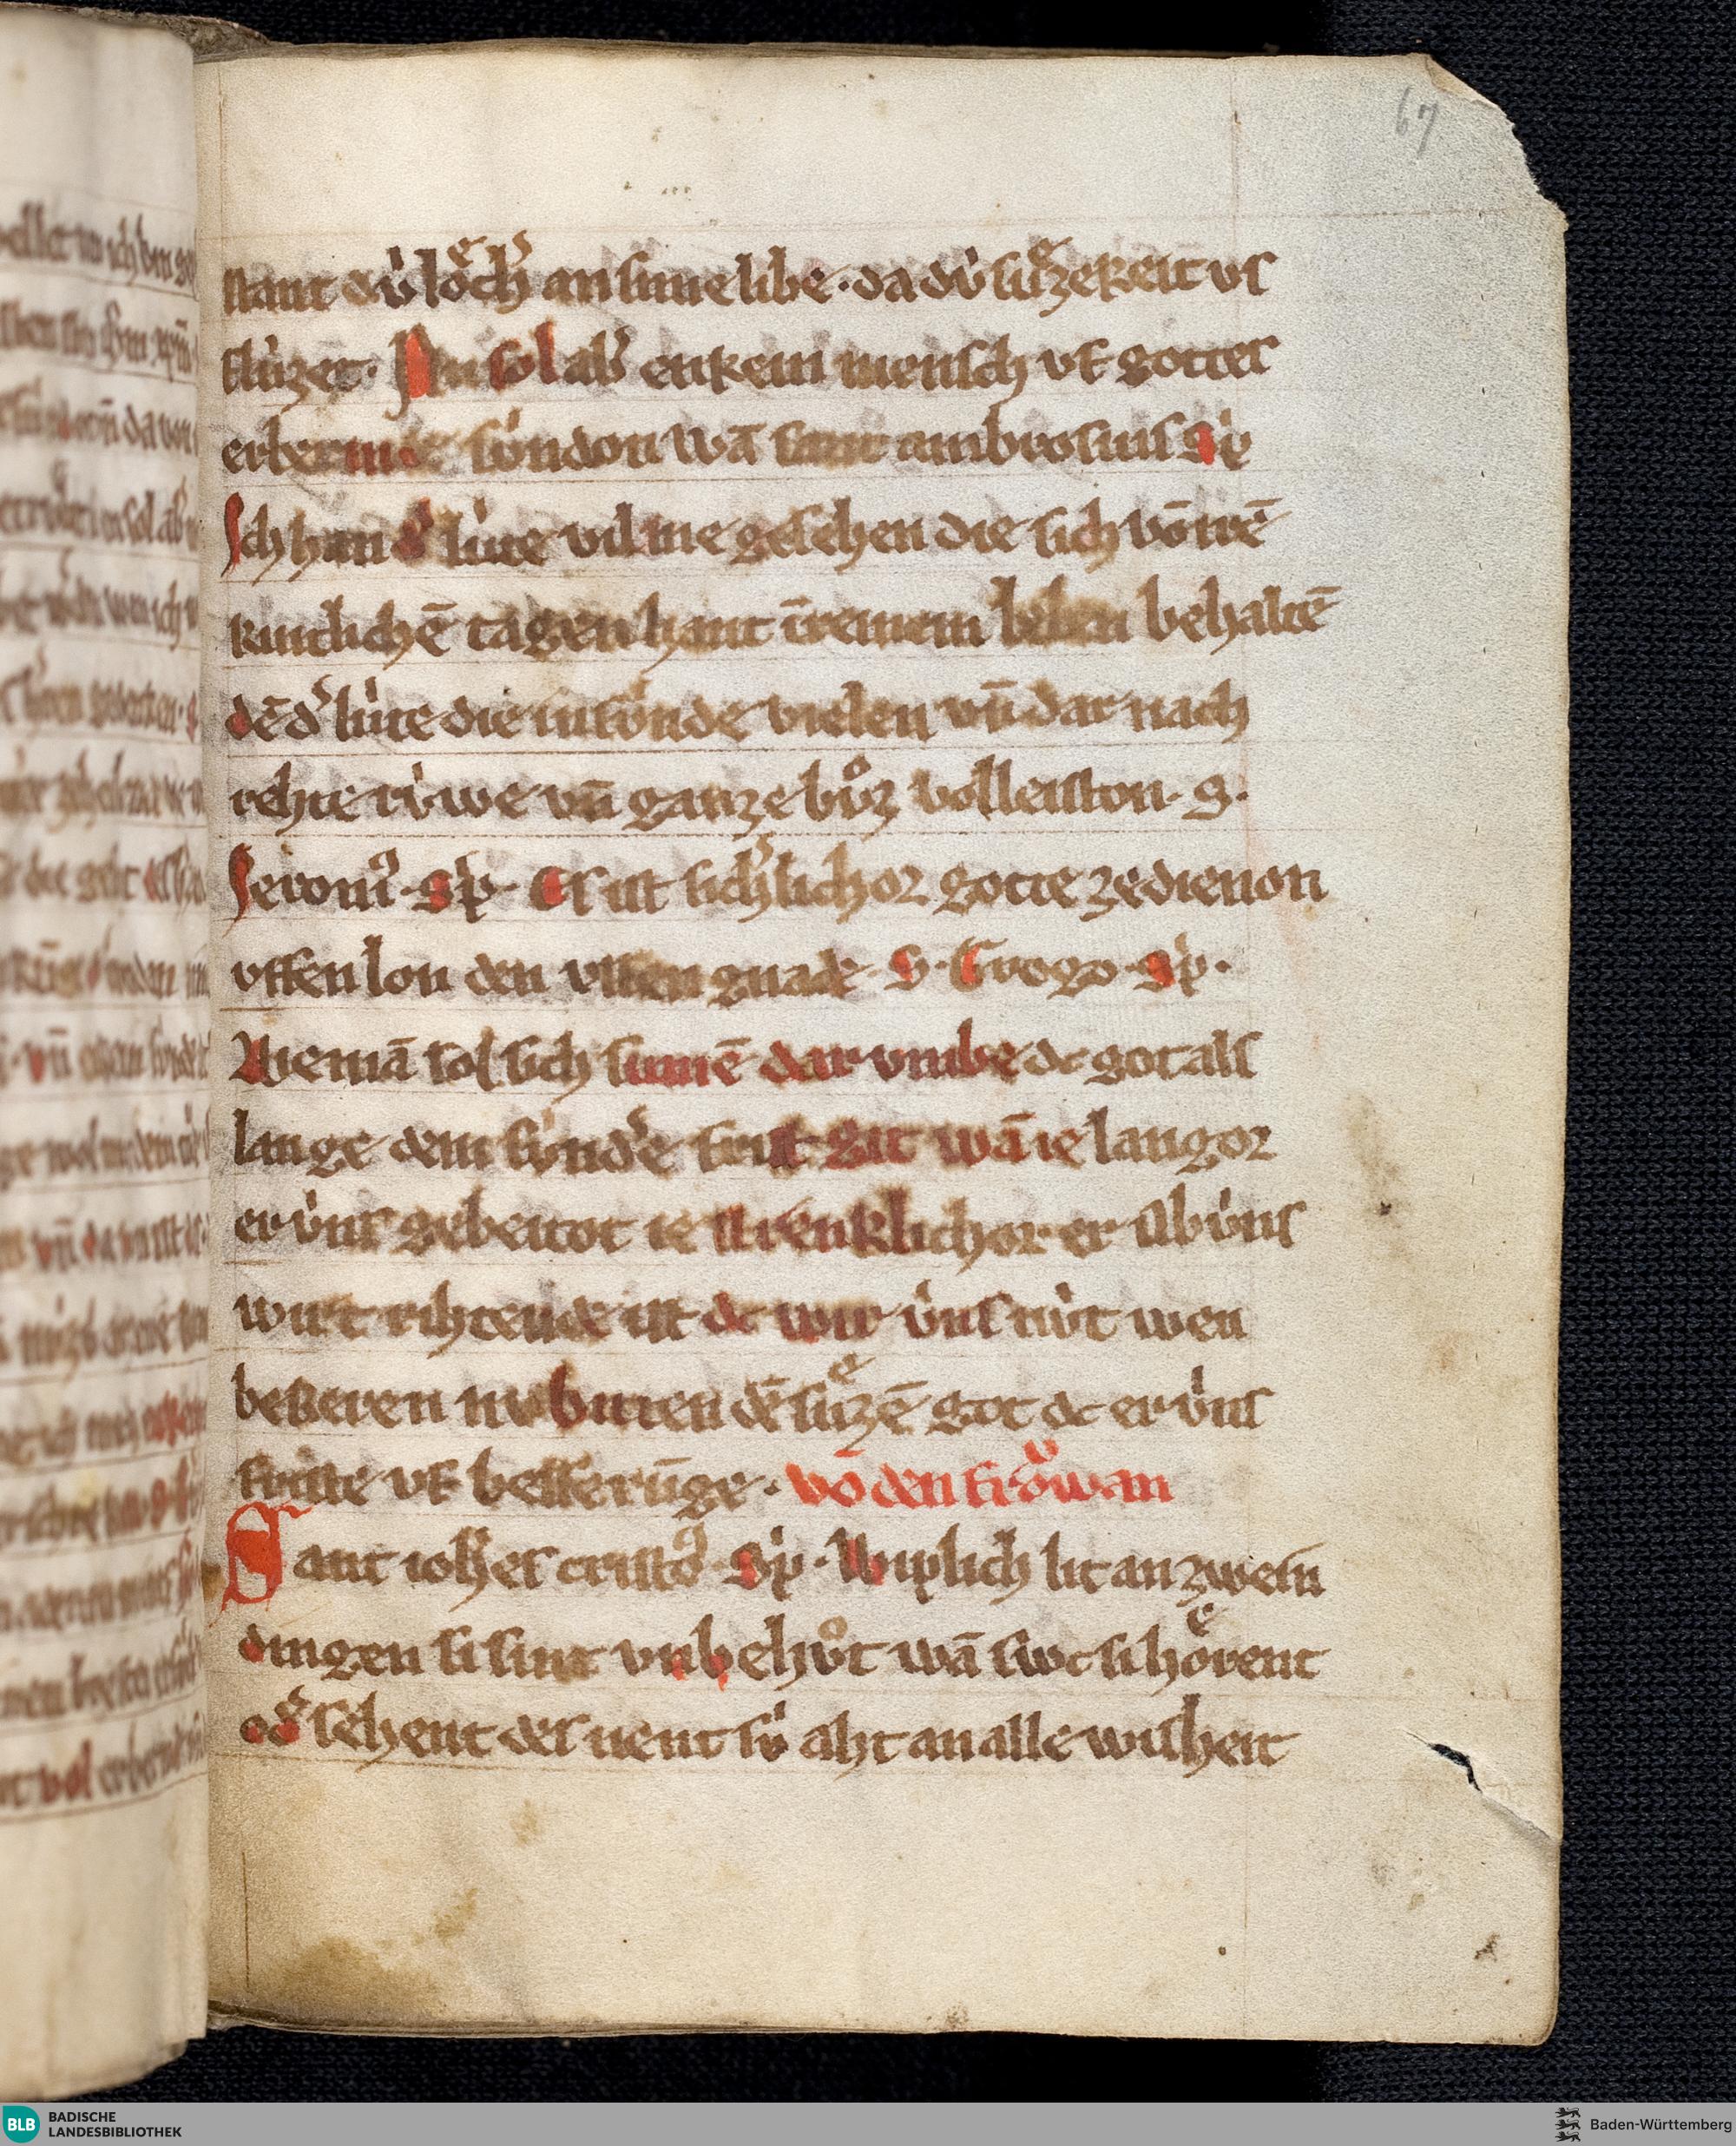 67
stant dv́ lo̊ͤchˀ an sime libe · da dv́ sůͤzekeit vs
flúzet · Nu sol abˀ enkein mensch vf gottes
erbermde súndon wā sant ambrosius sp̍
Ich han dˀ lúte vil me gesehen die sich vō irē
kintlichē tagen hant ī reinem leben behaltē
dē dˀ lúte die in súnde vielen vn̄ dar nach
rehte rúwe vn̄ ganze bůz volleiston · S ·
Jeronīꝰ · sp̍ · Es ist sichˀlichor gotte zedienon
vffen lon den vffen gnade · S · Grego · sp̍ ·
Niemā sol sich sumē dar vmbe dc got als
lange dem súndˀe frist git wā ie langor
er v́ns gebeitot ie strenklichor er ab v́ns
wirt rihtende ist dc wir v́ns nv́t wen
bekeren nv bitten dē sůͤzē got dc er v́ns
friste vf besserūge · vō den frowͦan
Sant ioh̄es cristoꝰ · sp̍ · Wiplich lit an zwein
dingen si sint vnbehůt wā swc si hoͤrent
odˀ sehent des nent sv́ aht an alle wisheit
BLB
BADISCHE
LANDESBIBLIOTHEK
Baden-Württemberg